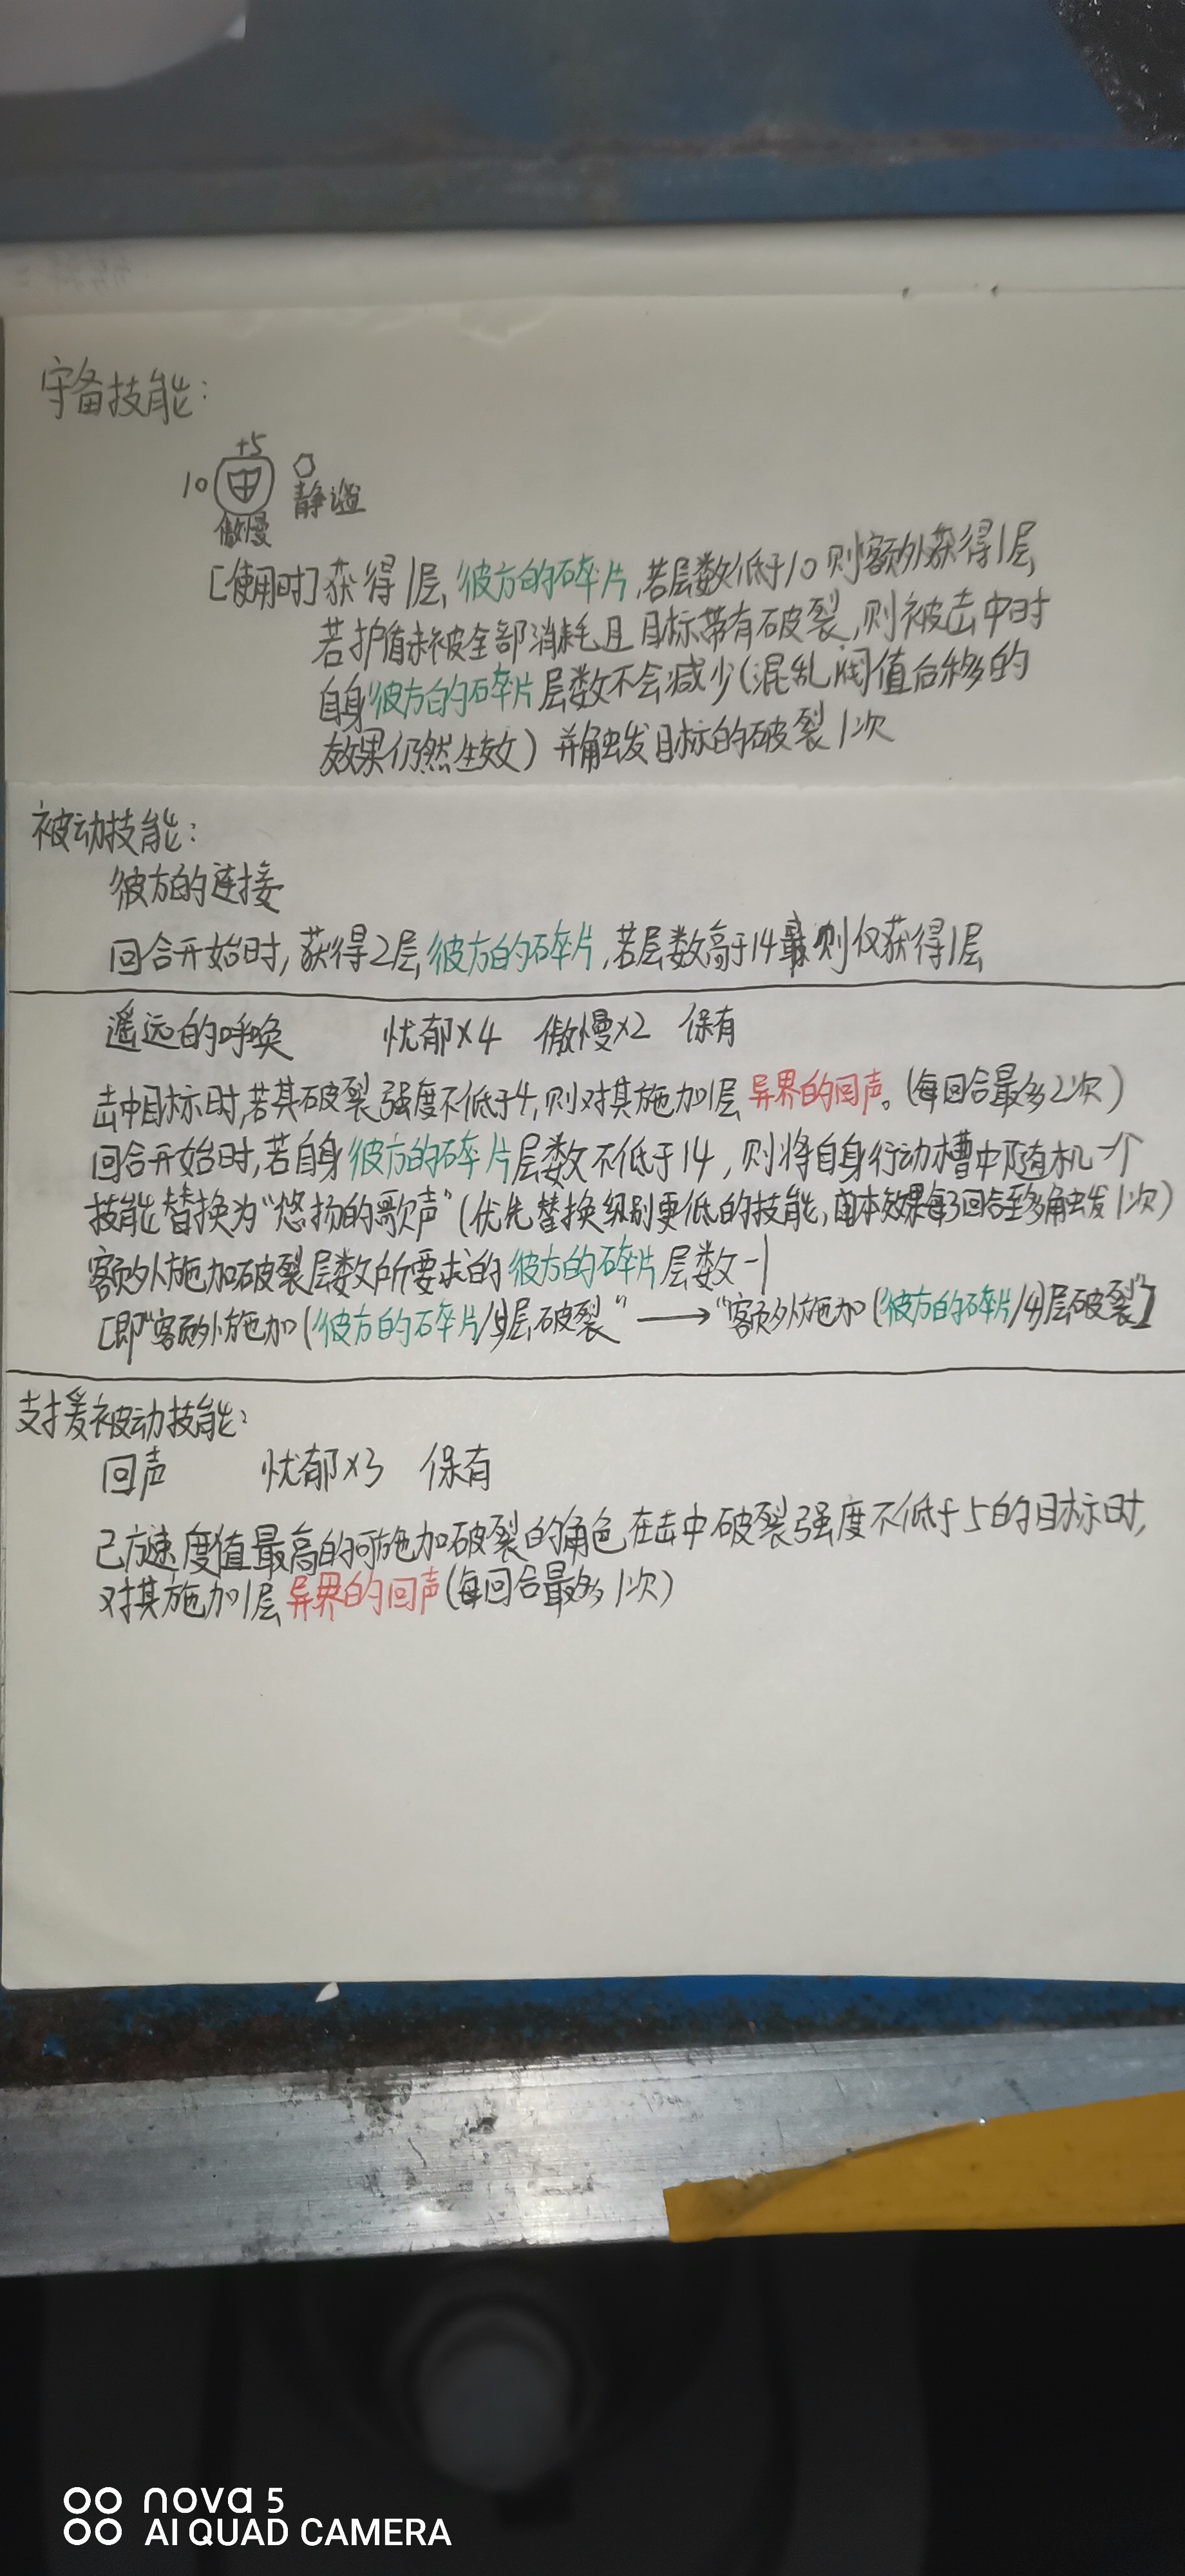 守备技能:
+5
10
静谧
傲慢
[使用时]获得1层,彼方的碎片,若层数低于10则额外获得1层,
若护盾未被全部消耗且目标带有破裂,则被击中时
自身彼方的碎片层数不会减少(混乱阈值后移的
效果仍然生效)并触发目标的破裂1次
被动技能:
彼方的连接
回合开始时,获得2层,彼方的碎片,若层数高于14则仅获得1层
遥远的呼唤 忧郁×4 傲慢×2 保有
击中目标时,若其破裂强度不低于4,则对其施加1层异界的回声。(每回合最多2次)
回合开始时,若自身彼方的碎片层数不低于14,则将自身行动槽中随机一个
技能替换为“悠扬的歌声”(优先替换级别更低的技能,本效果每3回合至多触发1次)
额外施加破裂层数所要求的彼方的碎片层数-1
[即“额外施加(彼方的碎片/5)层破裂”→“额外施加(彼方的碎片/4)层破裂”]
支援被动技能:
回声 忧郁×3 保有
己方速度值最高的可施加破裂的角色在击中破裂强度不低于5的目标时,
对其施加1层异界的回声(每回合最多1次)
nova 5
AI QUAD CAMERA